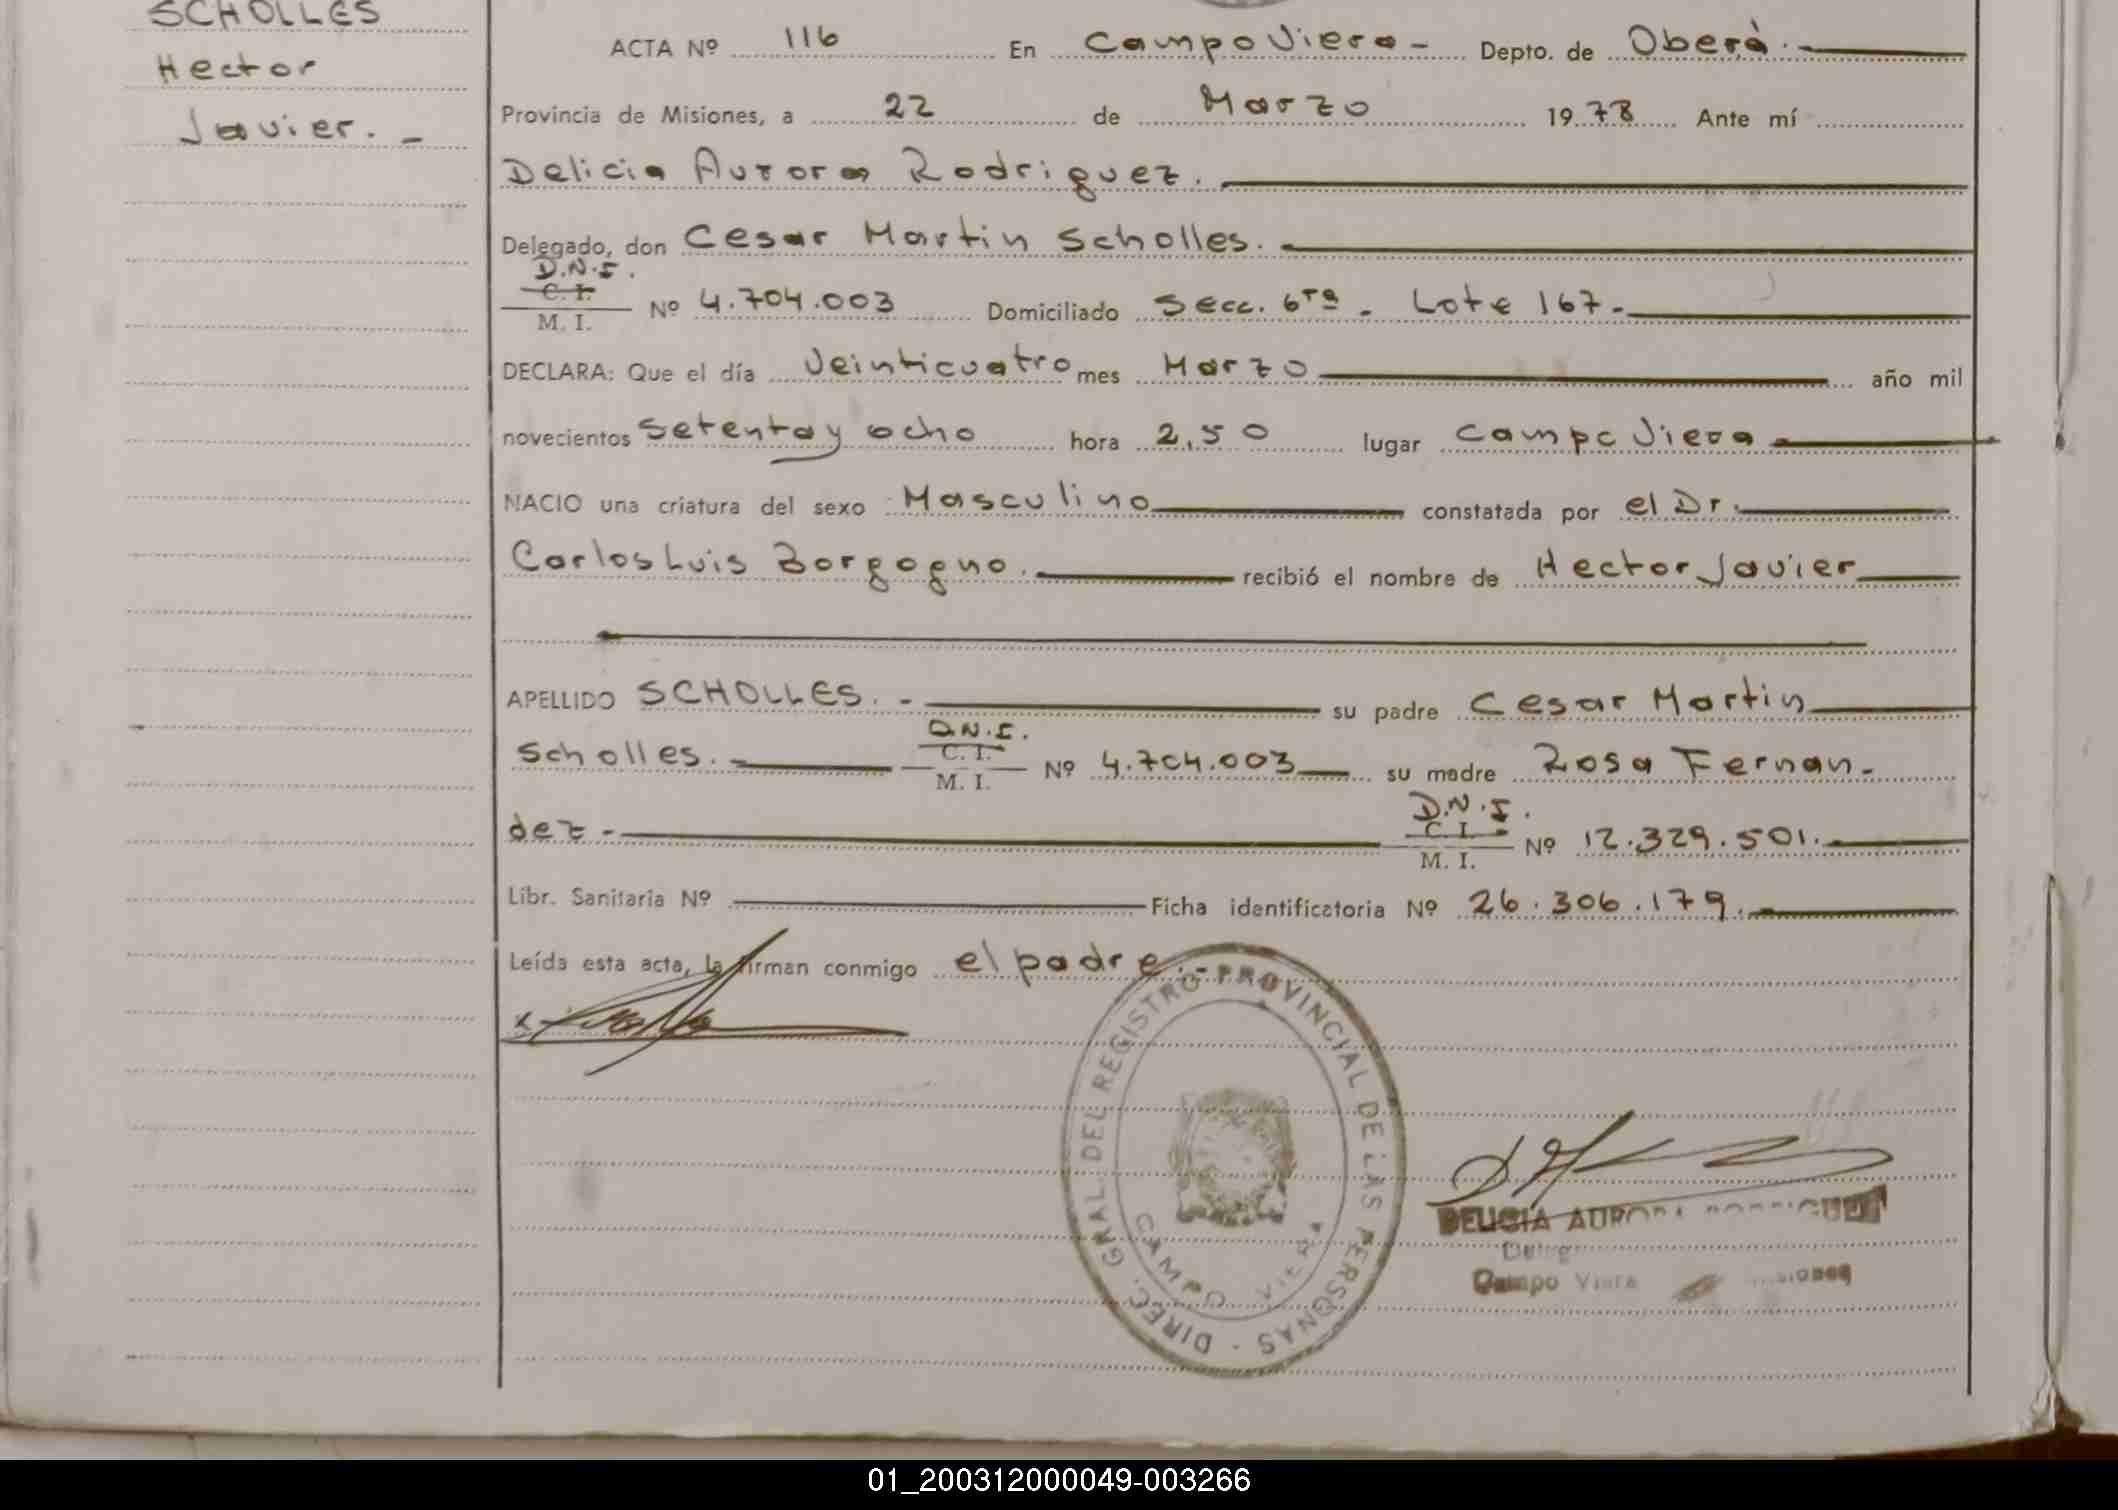 SCHOLLES
Hector
Javier. -
ACTA Nº 116 En Campo Viera - Depto. de Oberá. -
Provincia de Misiones, a 22 de Marzo 1978 Ante mí
Delicia Aurora Rodriguez.
Delegado, don Cesar Martin Scholles.
D.N.I.
C. I.
M. I. Nº 4.704.003 Domiciliado Secc. 6ta - Lote 167 -
DECLARA: Que el día Veinticuatro mes Marzo año mil
novecientos Setenta y ocho hora 2,50 lugar Campo Viera
NACIO una criatura del sexo Masculino constatada por el Dr.
Carlos Luis Borgogno. recibió el nombre de Hector Javier
APELLIDO SCHOLLES. - su padre Cesar Martin
D.N.I.
Scholles. - C. I. Nº 4.704.003 su madre Rosa Fernan-
M. I.
D.N.I.
dez - C. I. Nº 12.329.501.
M. I.
Libr. Sanitaria Nº Ficha identificatoria Nº 26.306.179.
Leída esta acta, la firman conmigo el padre. -
x
DIREC. GRAL DEL REGISTRO PROVINCIAL DE LAS PERSONAS -
CAMPO VIERA
DELICIA AURORA RODRIGUEZ
Campo Viera
01_200312000049-003266